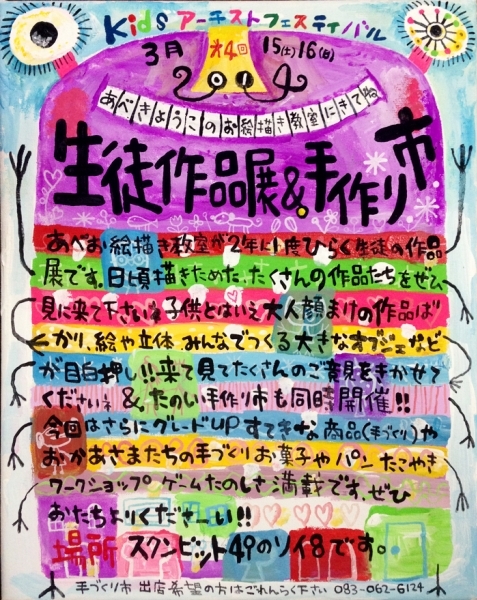 Kidsアーチストフェスティバル
3月 オ4回 15(土)16(日)
あべきょうこのお絵描き教室にきてね
生徒作品展&手作り市
あべお絵描き教室が2年に1度ひらく生徒の作品
展です。日頃描きためた、たくさんの作品たちをぜひ
見に来て下さいね子供とはいえ大人顔まけの作品ば
かり、絵や立体 みんなでつくる大きなオブジェなど
が目白押し!!来て見てたくさんのご意見をきかせて
くださいネ &、たのしい手作り市も同時開催!!
今回はさらにグレードUPすてきな商品(手づくり)や
おかあさまたちの手づくりお菓子やパン たこやき
ワークショップ ゲームたのしさ満載です。ぜひ
おたちよりくださーい!!
場所 スクンビット49のソイ8です。
手づくり市 出店希望の方はごれんらく下さい 083-062-6124